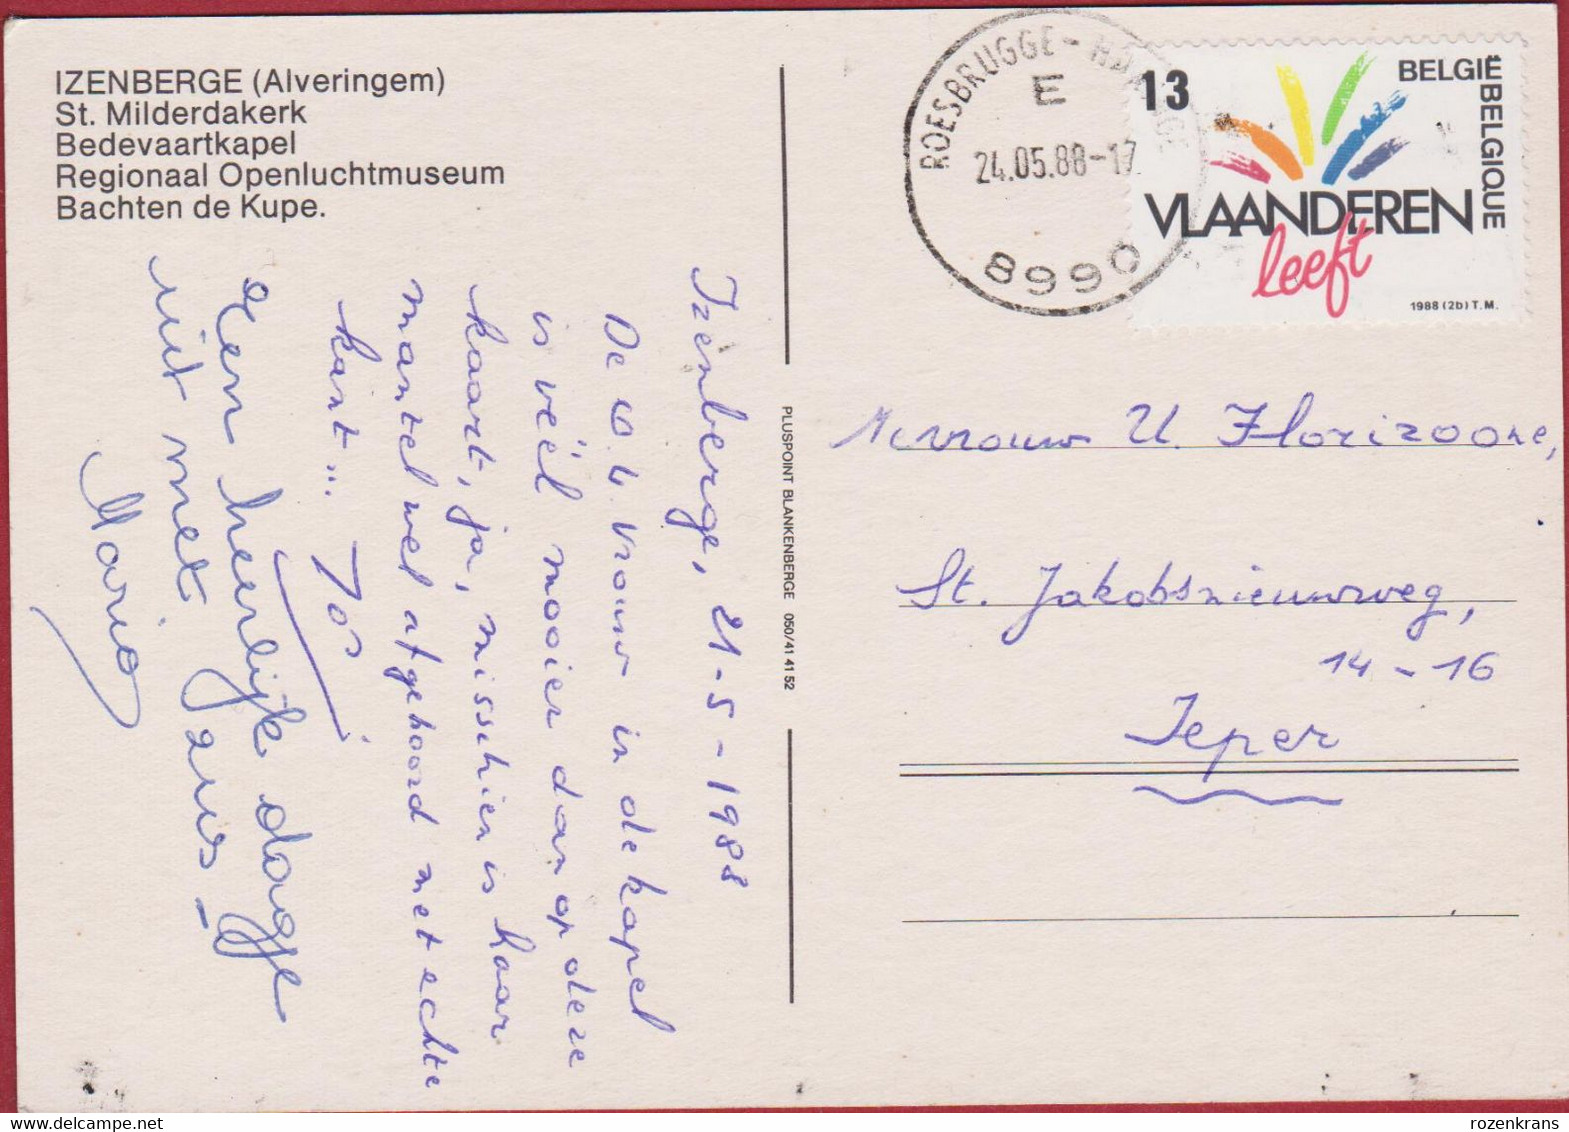 IZENBERGE (Alveringem)
St. Milderdakerk
Bedevaartkapel
Regionaal Openluchtmuseum
Bachten de Kupe.
Izenberge, 21-5-1988
De O.L. Vrouw in de kapel
is véél mooier dan op deze
kaart, ja, misschien is haar
mantel wel afgeboord met echte
kant... Jos
Een heerlijk dagje
uit met ons -
Maria
PLUSPOINT BLANKENBERGE 050/41 41 52
ROESBRUGGE-HARINGE
E
24.05.88-17
8990
13
BELGIË BELGIQUE
VLAANDEREN
leeft
1988 (2b) T.M.
Mevrouw U. Florizoone,
St. Jakobsnieuwweg,
14-16
Ieper
rozenkrans